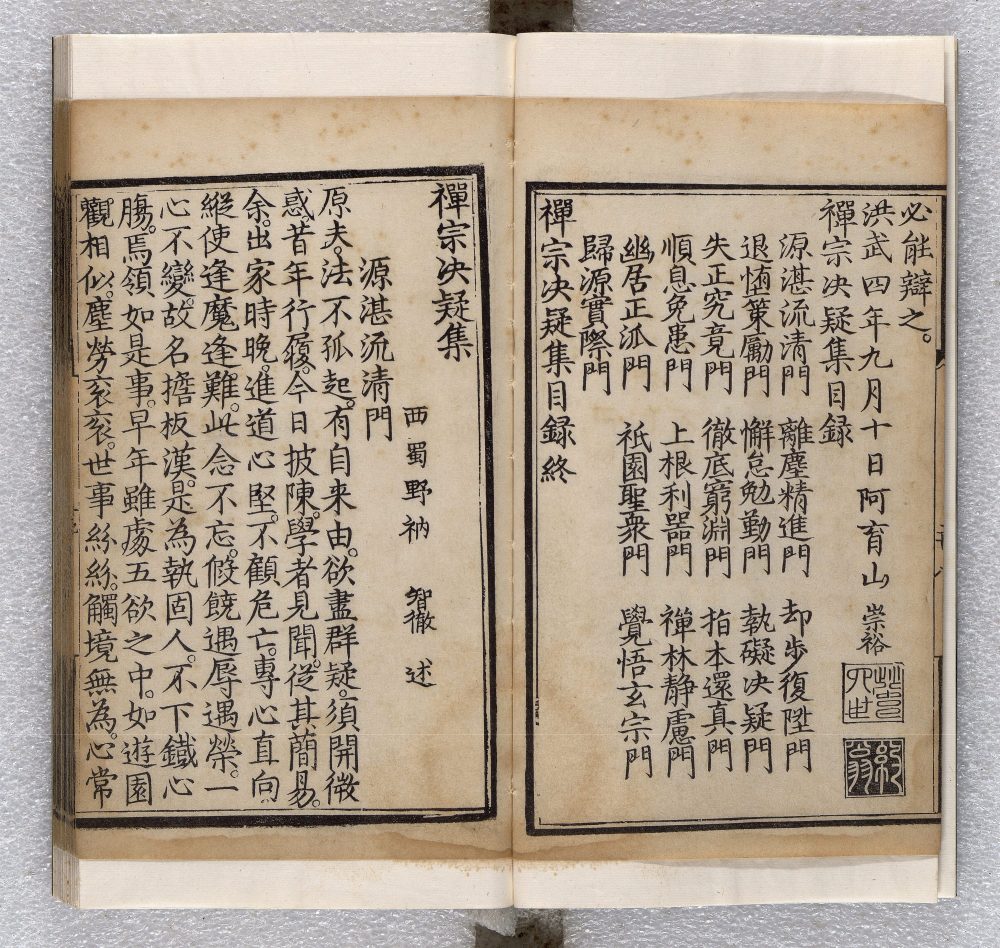 必能辯之。
洪武四年九月十日阿育山 崇裕
禪宗决疑集目録
源湛流清門 離塵精進門 却步復陞門
退堕策勵門 懈怠勉勤門 執礙决疑門
失正究竟門 徹底窮淵門 指本還真門
順息免患門 上根利器門 禪林静慮門
幽居正派門 祇園聖衆門 覺悟玄宗門
歸源實際門
禪宗决疑集目録終
禪宗决疑集
西蜀野衲 智徹 述
源湛流清門
原夫法不孤起。有自来由。欲盡群疑。須開微
惑。昔年行履。今日披陳。學者見聞。從其蕳易。
余。出家時晚。進道心堅。不顧危亡。專心直向
縱使逢魔逢難。此念不忘。假饒遇辱遇榮。一
心不變。故名擔板漢。是為執固人。不下鐵心
膓。焉領如是事。早年雖處五欲之中。如遊園
觀相似。塵勞衮衮。世事絲絲。觸境無為。心常